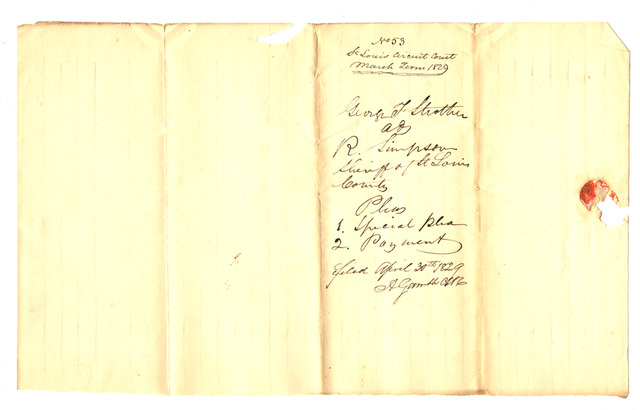 No 53
St Louis Circuit Court
March Term 1829
George F Strother
ads
R. Simpson
Sheriff of St Louis
County
Pleas
1. Special Plea
2. Payment
filed April 30th 1829
A Gamble Clk